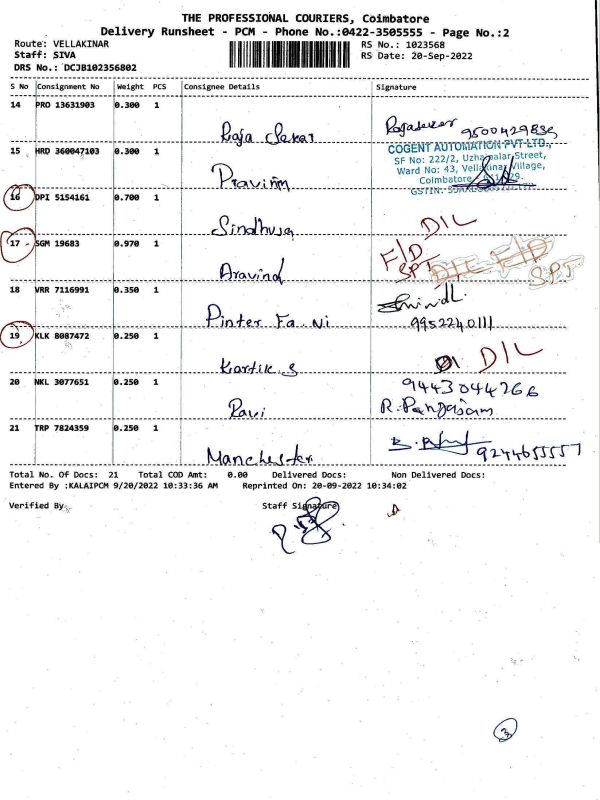 THE PROFESSIONAL COURIERS, Coimbatore
Delivery Runsheet - PCM - Phone No.:0422-3505555 - Page No.:2
Route: VELLAKINAR
RS No.: 1023568
Staff: SIVA
RS Date: 20-Sep-2022
DRS No.: DCJB102356802
S No Consignment No Weight PCS Consignee Details Signature
14 PRO 13631903 0.300 1
Raja Sekar Rajasekar
15 HRD 360047103 0.300 1
COGENT AUTOMATION PVT LTD.,
SF No: 222/2, Uzhapalar Street,
Ward No: 43, Vellakinar Village,
Coimbatore
GSTIN:
Pravinm
16 DPI 5154161 0.700 1
Sindhuja
D/L
17 SGM 19683 0.970 1
F/D
SPT
D/L F/D
SPT
Aravind
18 VRR 7116991 0.350 1
Pinter Fa. Ni 9952240111
19 KLK 8087472 0.250 1
Kartik S D/L
20 NKL 3077651 0.250 1
9443044266
Ravi
21 TRP 7824359 0.250 1
Manchester 9244655557
Total No. Of Docs: 21 Total COD Amt: 0.00 Delivered Docs: Non Delivered Docs:
Entered By :KALAIPCM 9/20/2022 10:33:36 AM Reprinted On: 20-09-2022 10:34:02
Verified By Staff Signature
3